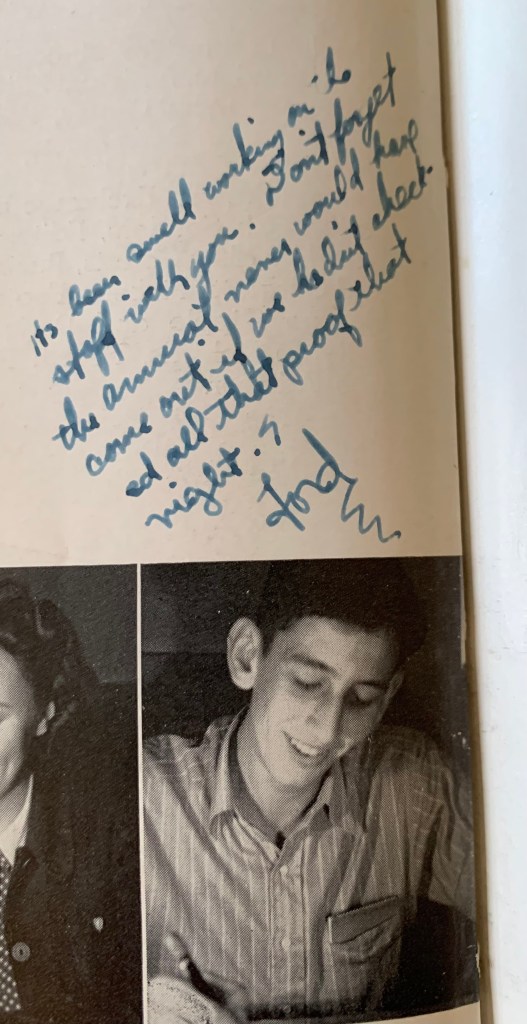 It's been swell working on the
staff with you. Don't forget
the annual never would have
come out if we hadn't check-
ed all that proof that
night.
Ford